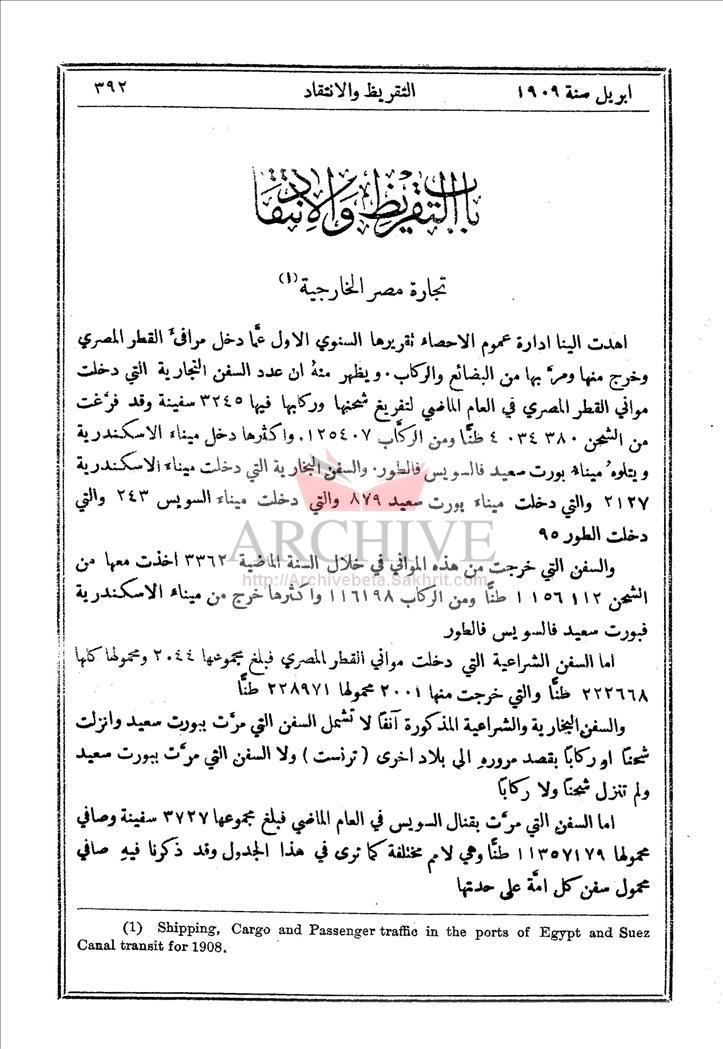 ابريل سنة ١٩٠٩ التقريظ والانتقاد ٣٩٢
باب التقريظ والانتقاد
تجارة مصر الخارجية (١)
اهدت الينا ادارة عموم الاحصاء تقريرها السنوي الاول عمَّا دخل مرافئ القطر المصري
وخرج منها ومرَّ بها من البضائع والركاب. ويظهر منهُ ان عدد السفن التجارية التي دخلت
مواني القطر المصري في العام الماضي لتفريغ شحنها وركابها فيها ٣٢٤٥ سفينة وقد فرَّغت
من الشحن ٣٨٠ ٠٣٤ ٤ طنًّا ومن الركَّاب ١٢٥٤٠٧. واكثرها دخل ميناء الاسكندرية
ويتلوهُ ميناء بورت سعيد فالسويس فالطور. والسفن البخارية التي دخلت ميناء الاسكندرية
٢١٢٧ والتي دخلت ميناء بورت سعيد ٨٧٩ والتي دخلت ميناء السويس ٢٤٣ والتي
دخلت الطور ٩٥
والسفن التي خرجت من هذه المواني في خلال السنة الماضية ٣٣٦٢ اخذت معها من
الشحن ١١٢ ١١٥٦ طنًّا ومن الركاب ١١٦١٩٨ واكثرها خرج من ميناء الاسكندرية
فبورت سعيد فالسويس فالطور
اما السفن الشراعية التي دخلت مواني القطر المصري فبلغ مجموعها ٢٠٤٤ ومحمولها كلها
٢٢٢٦٦٨ طنًّا والتي خرجت منها ٢٠٠١ محمولها ٢٢٨٩٧١ طنًّا
والسفن البخارية والشراعية المذكورة آنفًا لا تشمل السفن التي مرَّت ببورت سعيد وانزلت
شحنًا او ركابًا بقصد مرورهِ الى بلاد اخرى (ترنست) ولا السفن التي مرَّت ببورت سعيد
ولم تنزل شحنًا ولا ركابًا
اما السفن التي مرَّت بقنال السويس في العام الماضي فبلغ مجموعها ٣٧٢٧ سفينة وصافي
محمولها ١١٣٥٧١٧٩ طنًّا وهي لامم مختلفة كما ترى في هذا الجدول وقد ذكرنا فيهِ صافي
محمول سفن كل امَّة على حدتها
(1) Shipping, Cargo and Passenger traffic in the ports of Egypt and Suez
Canal transit for 1908.
ARCHIVE
http://Archivebeta.Sakhrit.com